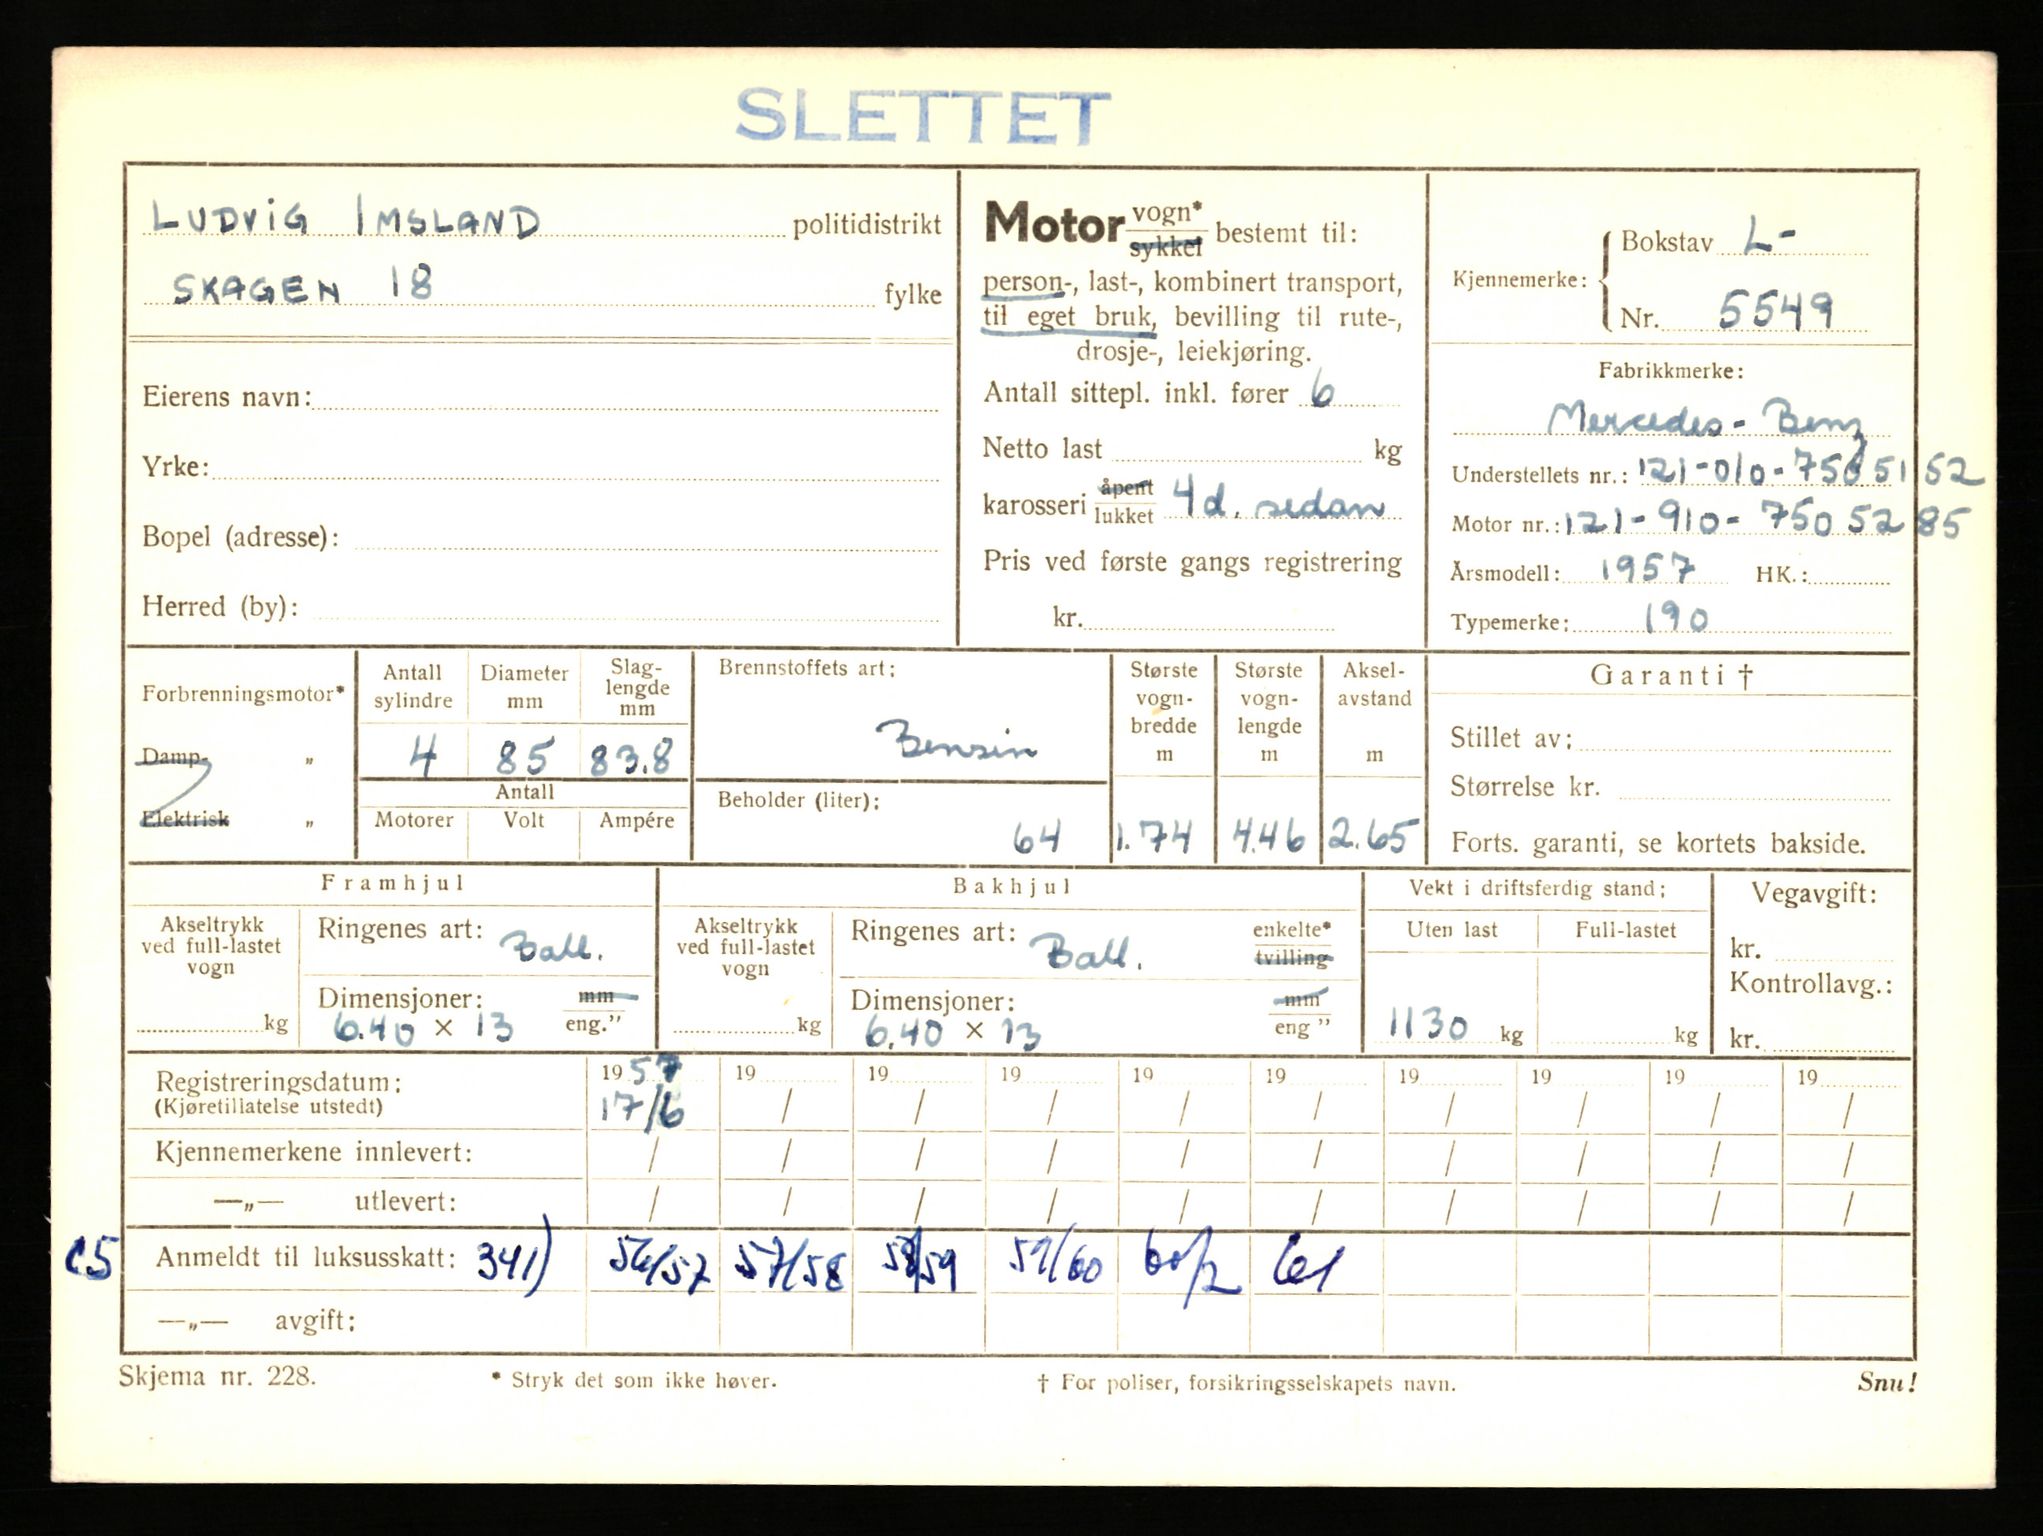 SLETTET
LUDVIG IMSLAND politidistrikt
SKAGEN 18 fylke
Eierens navn:
Yrke:
Bopel (adresse):
Herred (by):
Motor vogn*
sykkel bestemt til:
person-, last-, kombinert transport,
til eget bruk, bevilling til rute-,
drosje-, leiekjøring.
Antall sittepl. inkl. fører 6
Netto last kg
karosseri åpent
lukket 4d. sedan
Pris ved første gangs registrering
kr.
Kjennemerke: Bokstav L-
Nr. 5549
Fabrikkmerke:
Mercedes-Benz
Understellets nr.: 121-010-7505152
Motor nr.: 121-910-7505285
Årsmodell: 1957 HK.:
Typemerke: 190
Forbrenningsmotor*
Damp- „
Elektrisk „
Antall sylindre
Diameter mm
Slag-lengde mm
4 85 83.8
Antall
Motorer Volt Ampére
Brennstoffets art:
Bensin
Beholder (liter):
64
Største vogn-bredde m
1.74
Største vogn-lengde m
4.46
Aksel-avstand m
2.65
Garanti †
Stillet av:
Størrelse kr.
Forts. garanti, se kortets bakside.
Framhjul
Akseltrykk ved full-lastet vogn
kg
Ringenes art: Ball.
Dimensjoner: mm
6.40 × 13 eng."
Bakhjul
Akseltrykk ved full-lastet vogn
kg
Ringenes art: Ball. enkelte*
tvilling
Dimensjoner: mm
6.40 × 13 eng "
Vekt i driftsferdig stand:
Uten last Full-lastet
1130 kg kg
Vegavgift:
kr.
Kontrollavg.:
kr.
Registreringsdatum: 1957 19 19 19 19 19 19 19 19 19
(Kjøretillatelse utstedt) 17/6 / / / / / / / / /
Kjennemerkene innlevert: / / / / / / / / / /
—„— utlevert: / / / / / / / / / /
C5 Anmeldt til luksusskatt: 341) 56/57 57/58 58/59 59/60 60/2 61
—„— avgift:
Skjema nr. 228. * Stryk det som ikke høver. † For poliser, forsikringsselskapets navn. Snu!